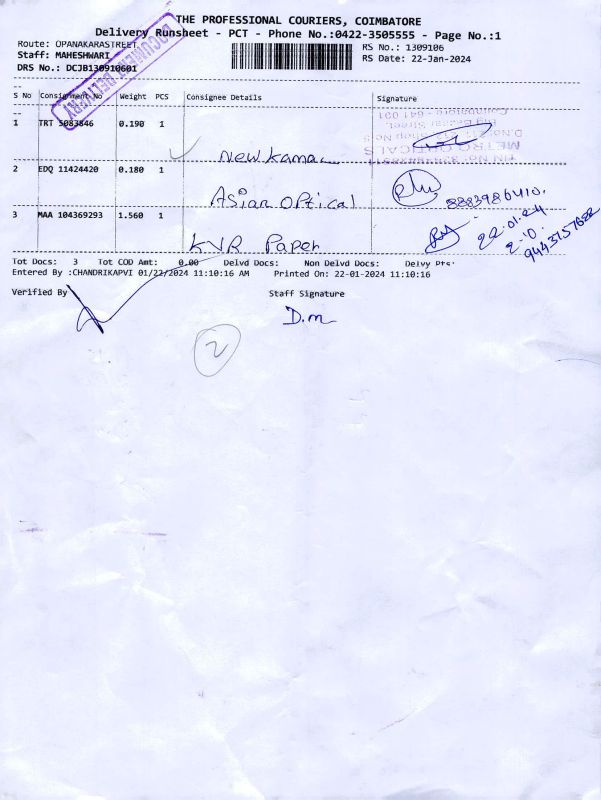 THE PROFESSIONAL COURIERS, COIMBATORE
Delivery Runsheet - PCT - Phone No.:0422-3505555 - Page No.:1
Route: OPANAKARASTREET
Staff: MAHESHWARI
DRS No.: DCJB130910601
RS No.: 1309106
RS Date: 22-Jan-2024
DOCUMENT DELIVERY
S No Consignment No Weight PCS Consignee Details Signature
1 TRT 5083846 0.190 1 New Kamal
METRO OPTICALS
2 EDQ 11424420 0.180 1 Asian Optical 8883986410.
3 MAA 104369293 1.560 1 KVR Paper
22.01.24
2.10.
9443757682
Tot Docs: 3 Tot COD Amt: 0.00 Delvd Docs: Non Delvd Docs: Delvy Pts:
Entered By :CHANDRIKAPVI 01/22/2024 11:10:16 AM Printed On: 22-01-2024 11:10:16
Verified By Staff Signature
D.m
2